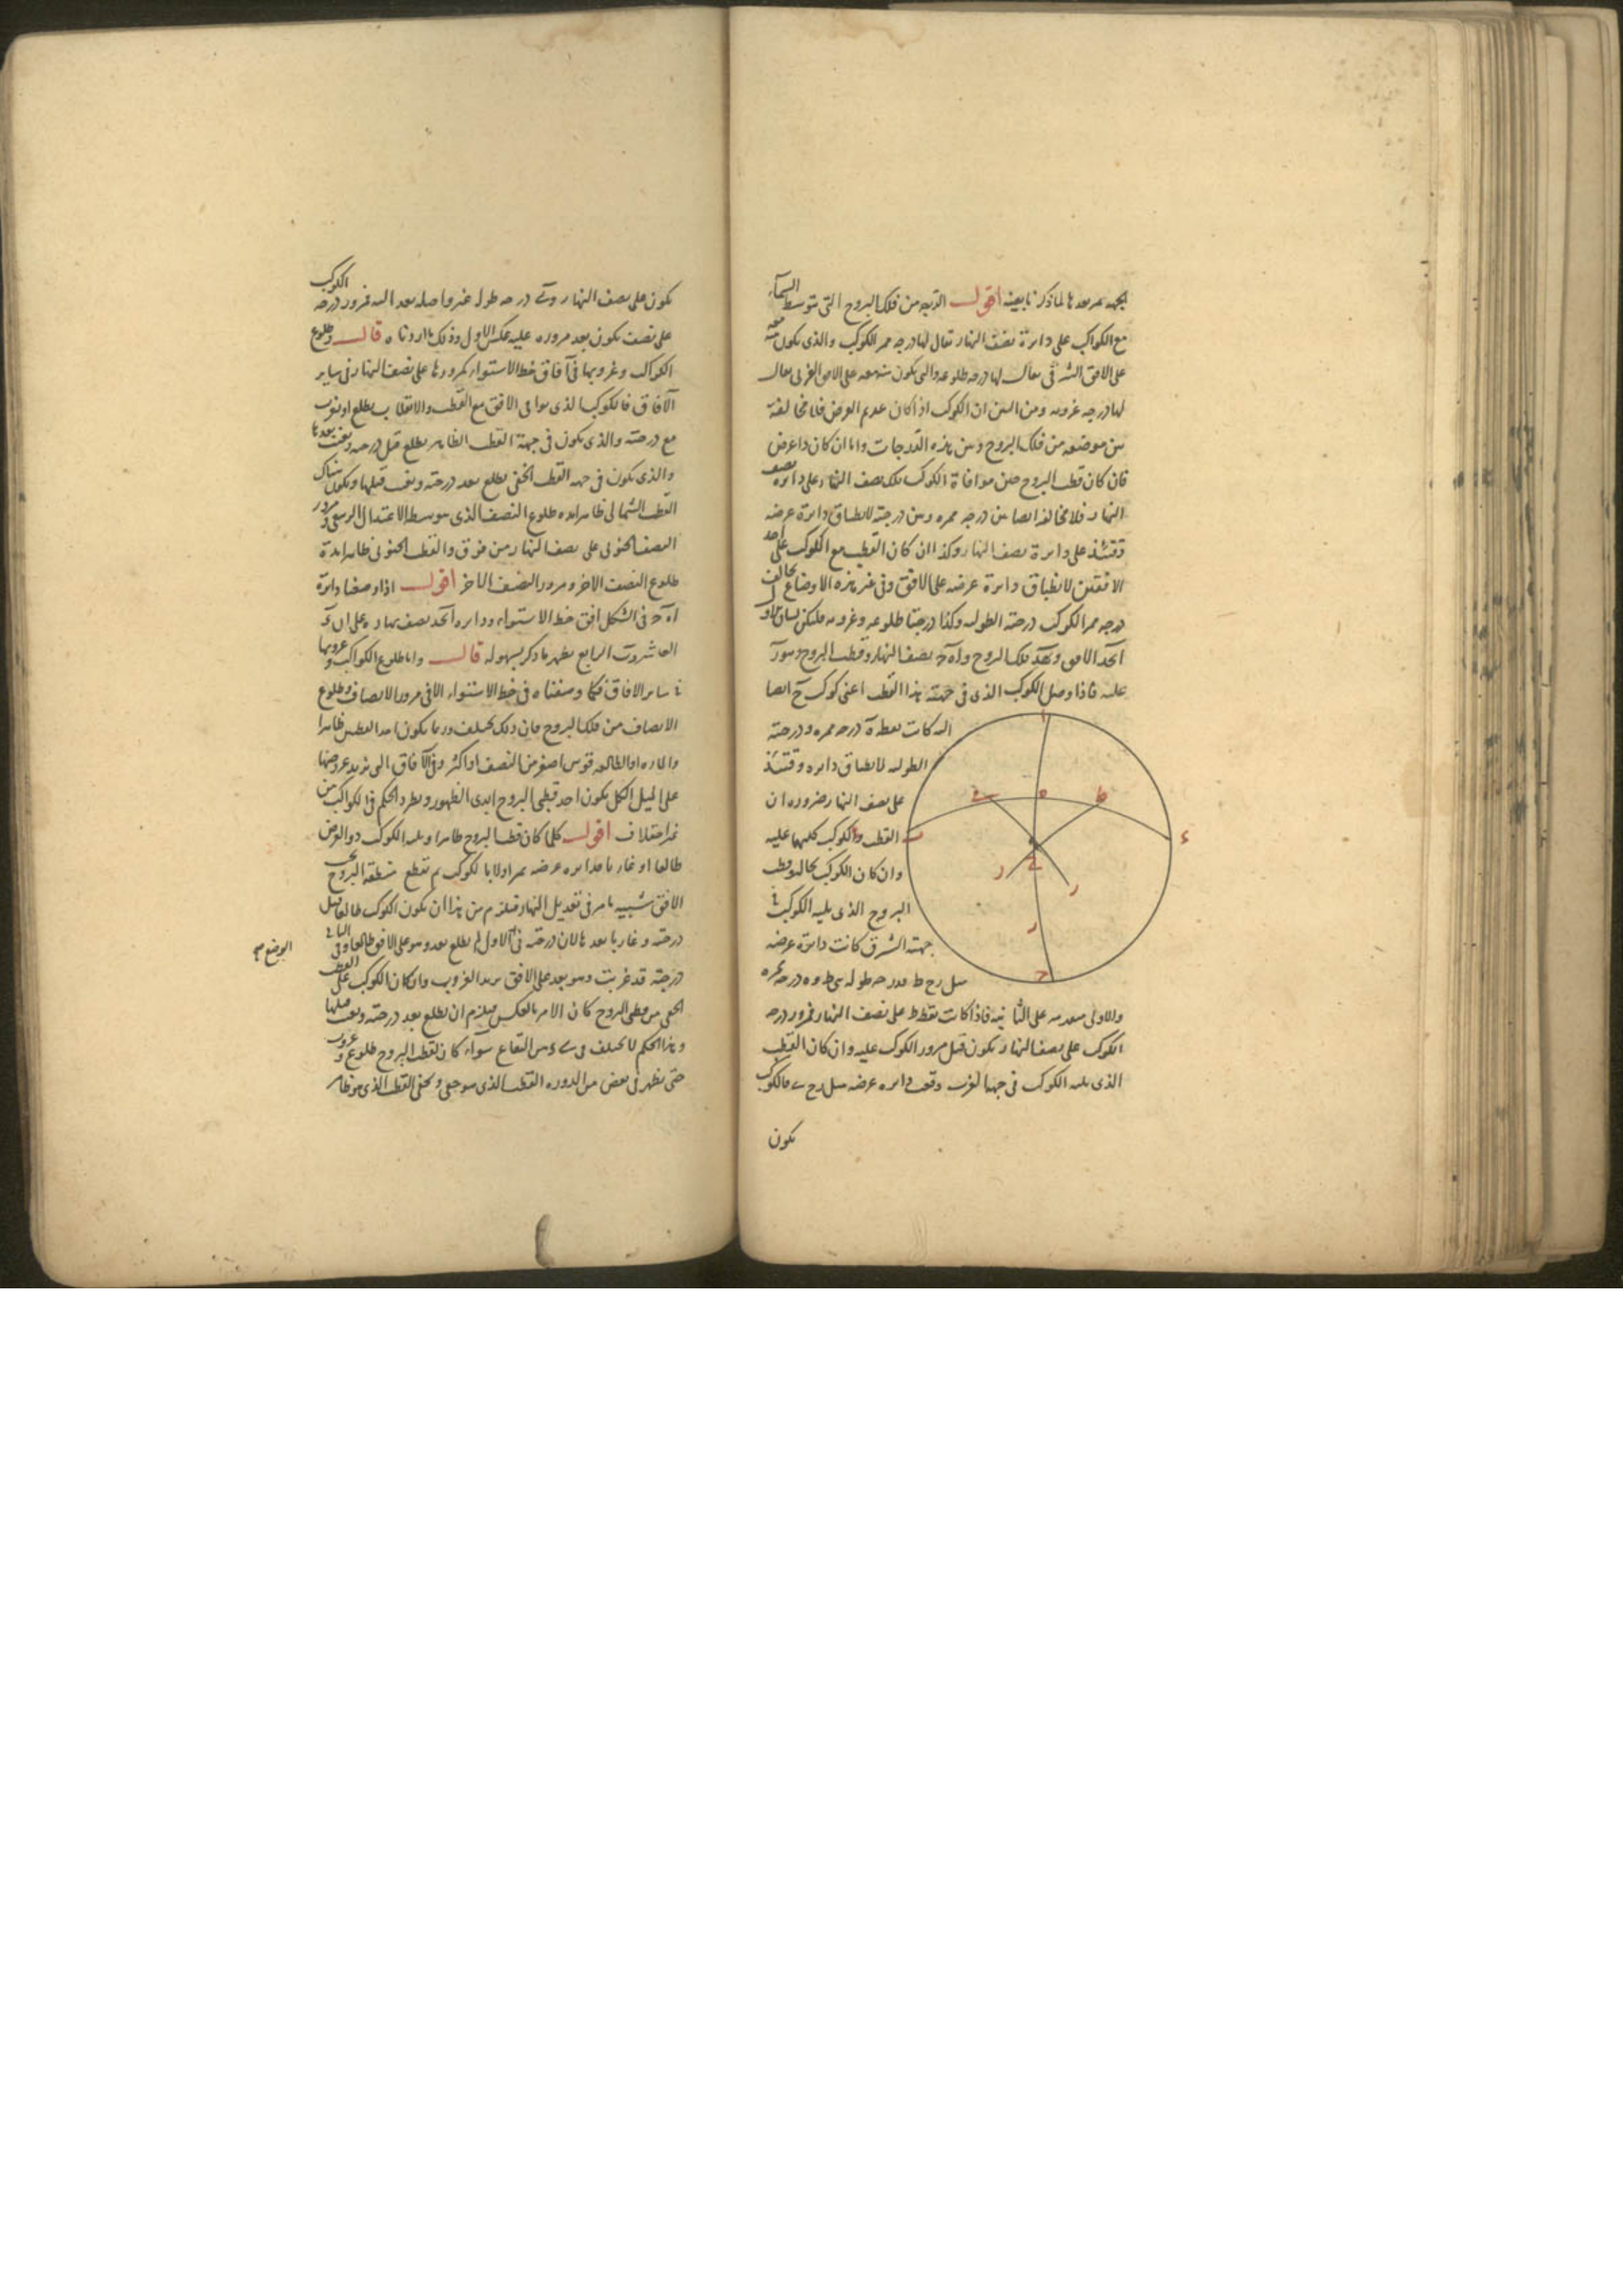 الجهة يمر بعدها لما ذكرنا بعينه اقول الدرجة من فلك البروج التى تتوسط السماء
مع الكواكب على دائرة نصف النهار يقال لها درجه ممر الكوكب والذى يكون معه
على الافق الشرقى يقال لها درجه طلوعه والتى يكون معه على الافق الغربى يقال
لها درجه غروبه ومن البين ان الكوكب اذا كان عديم العرض فلا مخالفة
بين موضعه من فلك البروج وبين هذه الدرجات واما ان كان ذا عرض
فان كان قطب البروج حين موافاة الكوكب فلك نصف النهار على دائره نصف
النهار فلا مخالفة ايضا بين درجه ممره وبين درجته لانطباق دائرة عرضه
وقتئذ على دائرة نصف النهار وكذا ان كان القطب مع الكوكب على احد
الافقين لانطباق دائرة عرضه على الافق وفى غير هذه الاوضاع يخالف
درجه ممر الكوكب درجته الطوليه وكذا درجتا طلوعه وغروبه فليكن لبيان
ا ب ج د الافق و ب ه د فلك البروج و ا ه ج نصف النهار وقطب البروج وهو ر
عليه فاذا وصل الكوكب الذى فى جهته هذا القطب اعنى كوكب ح ايضا
اليه كانت نقطة ه درجه ممره ودرجته
الطوليه لانطباق دائره وقتئذ
على نصف النهار ضروره ان
القطب والكوكب كليهما عليه
وان كان الكوكب بحاله وقطب
البروج الذى يليه الكوكب فى
جهته الشرق كانت دائرة عرضه
مثل ر ح ط ودرجه طوله هى ط و ه درجه ممره
والاولى متقدمه على الثانيه فاذا كانت نقطه ط على نصف النهار فمرور درجه
الكوكب على نصف النهار يكون قبل مرور الكوكب عليه وان كان القطب
الذى يليه الكوكب فى جهه الغرب وقعت دائره عرضه مثل ر ح ى فالكوكب
يكون
يكون على نصف النهار و ى درجه طوله غير واصله بعد اليه فمرور درجه الكوكب
على نصف يكون بعد مروره عليه عكس الاول وذلك ما اردناه قال وطلوع
الكواكب وغروبها فى آفاق خط الاستواء كمرورها على نصف النهار فى ساير
الآفاق فالكوكب الذى يوافى الافق مع القطب والانقلاب يطلع او يغرب
مع درجته والذى يكون فى جهة القطب الظاهر يطلع قبل درجته ويغيب بعدها
والذى يكون فى جهه القطب الخفى يطلع بعد درجته ويغيب قبلها ويكون هناك
القطب الشمالى ظاهرا مده طلوع النصف الذى يتوسطه الاعتدال الربيعى ومرور
النصف الجنوبى على نصف النهار من فوق والقطب الجنوبى ظاهرا مدة
طلوع النصف الآخر ومرور النصف الآخر اقول اذا وضعنا دائرة
ا ه ج فى الشكل افق خط الاستواء ودايره ا ب ج د نصف نهاره
يظهر ما ذكر بسهوله قال واما طلوع الكواكب وغروبها
فى ساير الافاق فكما وصفناه فى خط الاستواء الا فى مرور الانصاف وطلوع
الانصاف من فلك البروج فان ذلك يختلف وربما يكون احد القطبين ظاهرا
والماره او الطالعه قوس اصغر من النصف او اكثر وفى الآفاق التى يزيد عروضها
على الميل الكلى يكون احد قطبى البروج ابدى الظهور ويطرد الحكم فى الكواكب من
غير اختلاف اقول كلما كان قطب البروج ظاهرا ويليه الكوكب ذو العرض
طالعا او غاربا فدايره عرضه تمر اولا بالكوكب ثم تقطع منطقة البروج تحت
الافق شبيه ما مر فى تعديل النهار فيلزم من هذا ان يكون الكوكب طالعا قبل
درجته وغاربا بعدها لان درجته فى الاول لم يطلع بعد وهو على الافق طالعا وفى الثانى
درجته قد غربت وهو بعد على الافق يريد الغروب وان كان الكوكب على القطب
الخفى من قطبى البروج كان الامر بالعكس فيلزم ان يطلع بعد درجته ويغيب قبلها
وهذا الحكم لا يختلف فى شىء من البقاع سوآء كان لقطب البروج طلوع وغروب
حتى يظهر فى بعض من الدوره القطب الذى هو خفى ويخفى القطب الذى هو ظاهر
الوضع